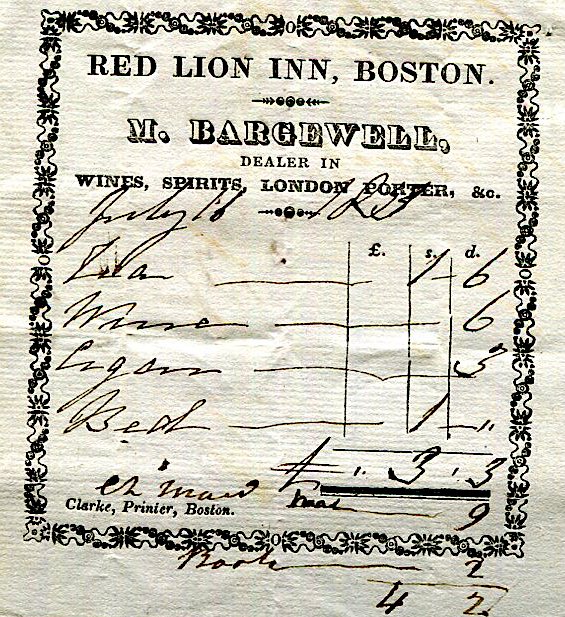 RED LION INN, BOSTON.
M. BARGEWELL,
DEALER IN
WINES, SPIRITS, LONDON PORTER, &c.
July 16
£. s. d.
Tea 1 - 6
Wine 6
Cigars 3
Bed 1 - "
£ " 3 " 3
Ch Maid
9
Clarke, Printer, Boston.
Boots 2
4 2